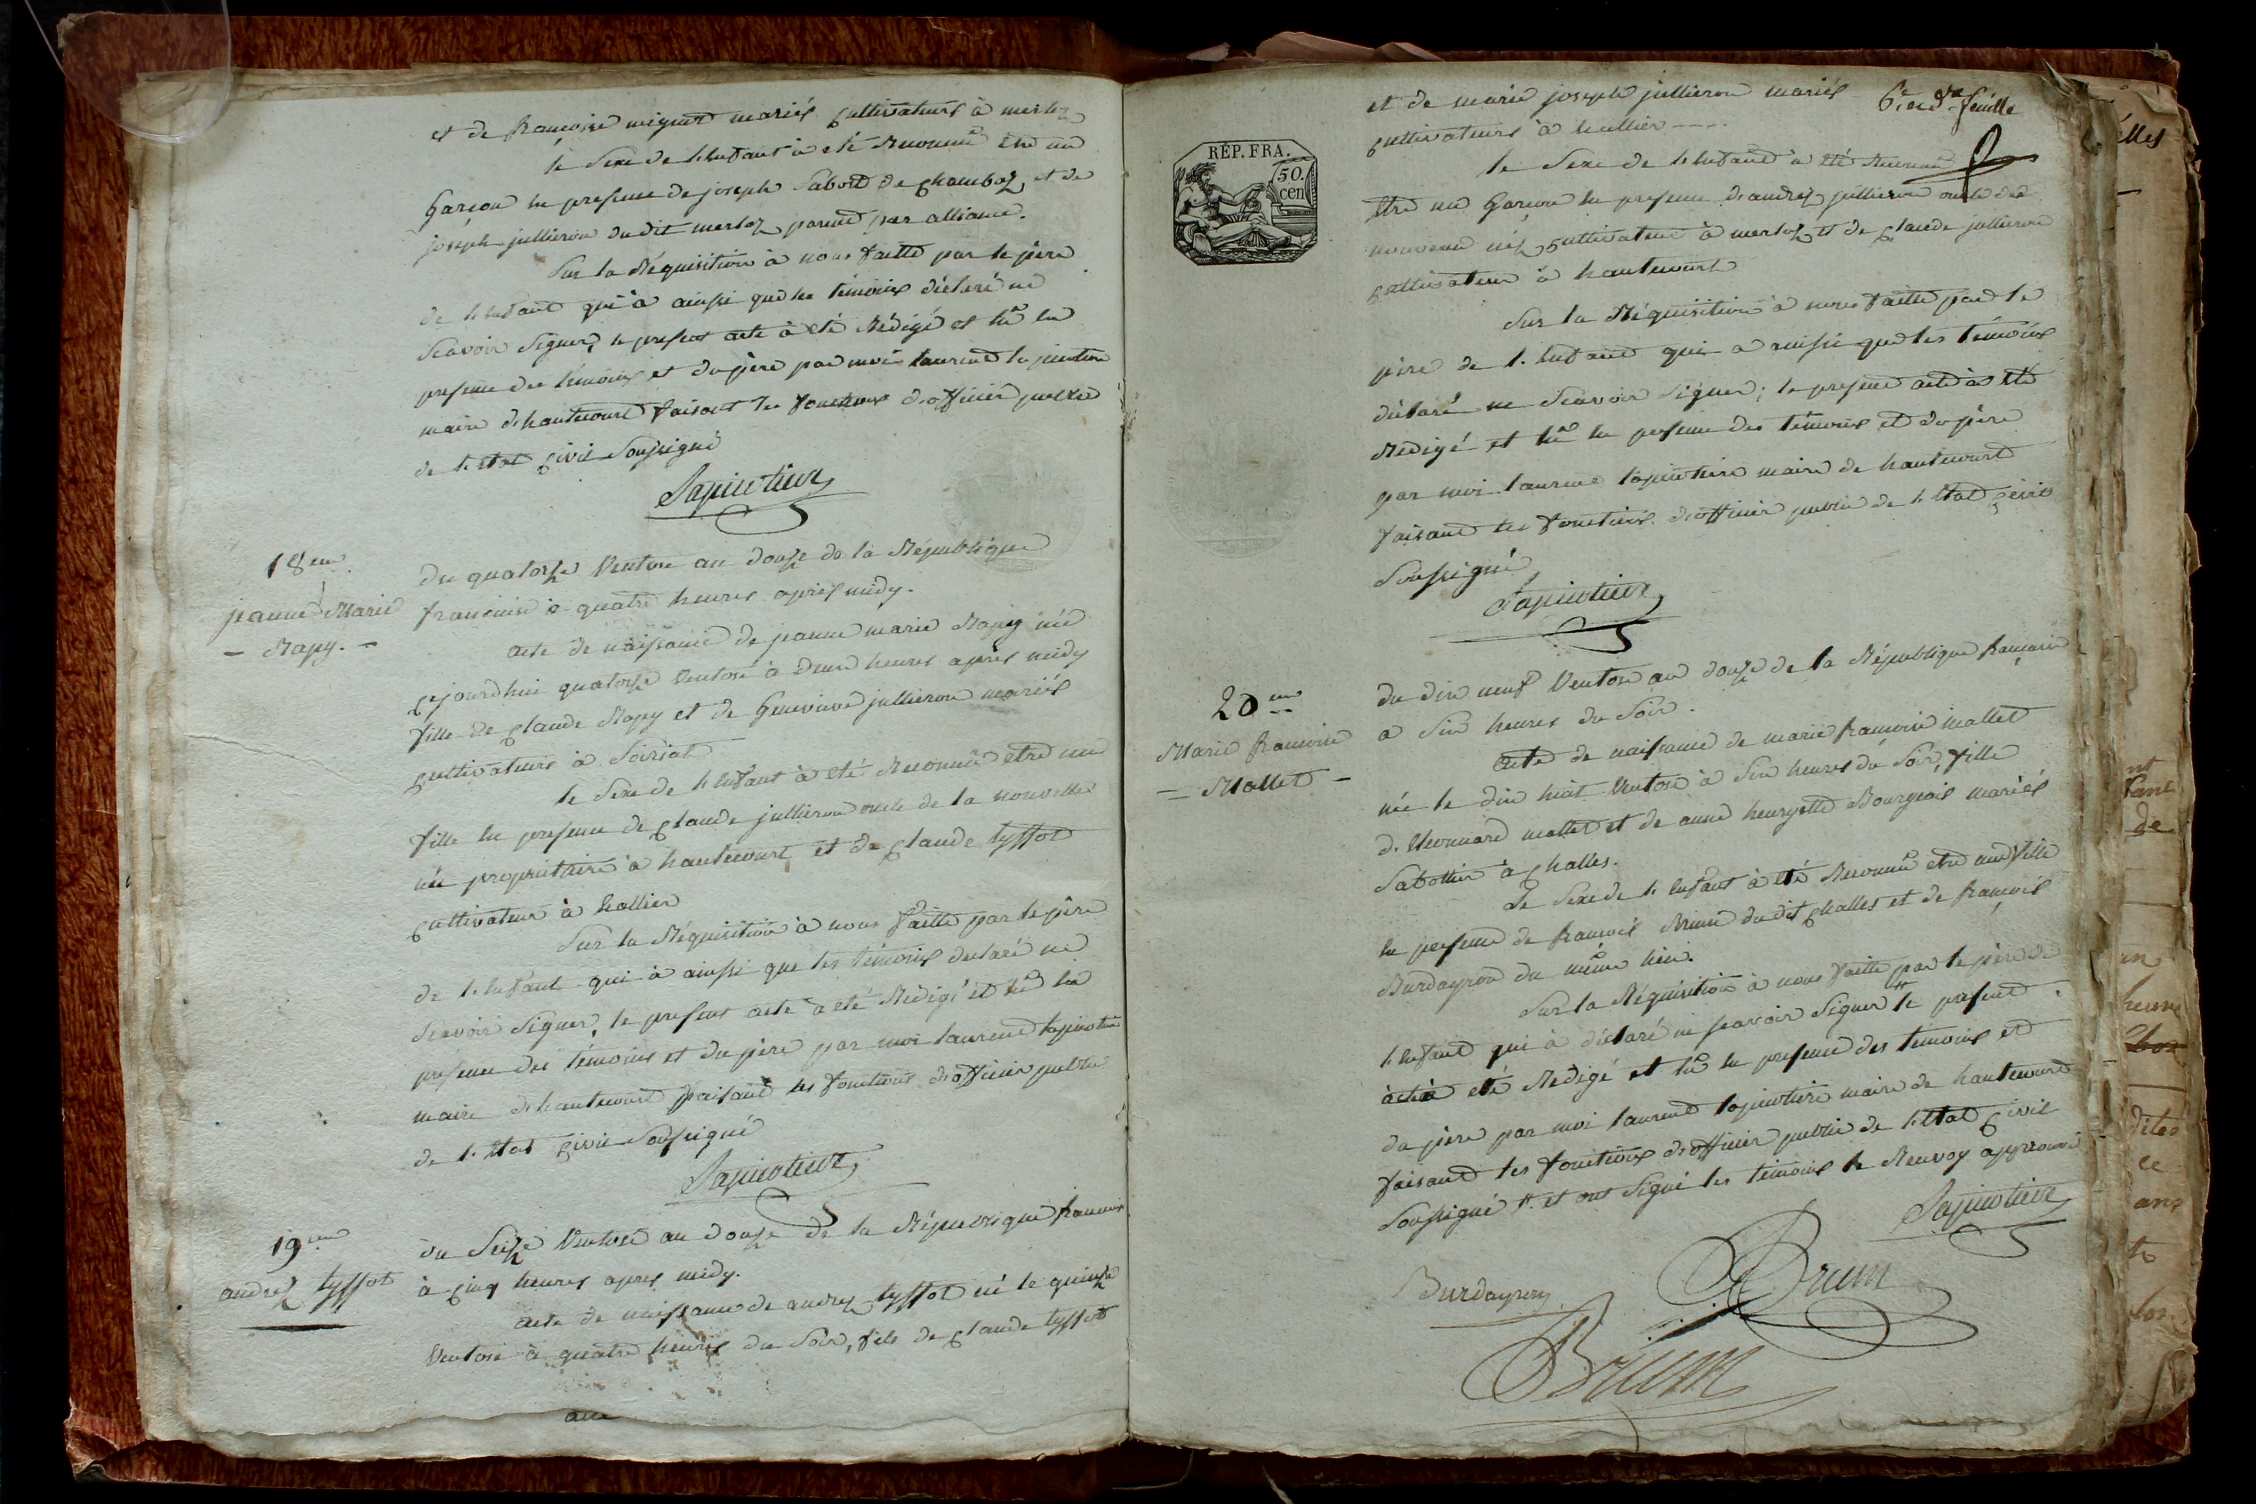 et de françoise miguet mariés cultivateurs à merloz
le sexe de l'enfant à eté reconnû etre un
Garçon en presence de joseph Sabord de chamboz et de
joseph jullieron du dit merloz parent par alliance.
Sur la Réquisition à nous faitte par le père
de l'enfant qui à ainssi que les témoins déclaré ne
Scavoir Signer, le present acte à eté Rédigé et lû en
presence des témoins et du père par moi laurent lapierre
maire d'hautecourt faisant les fonctions d'officier public
de l'etat civil Soussigné
18eme
jeanne Marie
– Rapy. –
Du quatorze Ventose an douze de la République
francoise à quatre heures après midy.
acte de naissance de jeanne marie Rapy née
cejourdhui quatorze Ventose à deux heures après midy
fille de claude Rapy et de Genevieve jullieron mariés
cultivateurs à Soiriat
le Sexe de l'enfant à eté Reconnû etre une
fille en presence de claude jullieron oncle de la nouvelle
née propriettaire à hautecourt et de claude tyssot
cultivateur à hallier
Sur la Réquisition à nous faitte par le père
de l'enfant qui à ainssi que les témoins declaré ne
Scavoir Signer, le present acte à eté Rédigé et lû en
presence des témoins et du père par moi laurent
maire d'hautecourt faisant les fonctions d'officier public
de l'etat civil Soussigné
19eme
andrez tyssot
du Seize Ventose an douze de la République francoise
à cinq heures apres midy.
acte de naissance de andrez tyssot né le quinze
Ventose à quatre heures du Soir, fils de claude tyssot
6e et dre feuille
et de marie joseph jullieron mariés
cultivateurs à hallier ----
RÉP. FRA.
50.
cen
le Sexe de l'enfant à eté Reconnû
etre un Garçon en presence d'andrez jullieron oncle du
nouveau néz cultivateur à merloz et de claude jullieron
cultivateur à hautecourt
Sur la Réquisition à nous faitte par le
père de l'enfant qui a ainssi que les témoins
déclaré ne Scavoir Signer; le present acte à eté
Redigé et lû en presence des témoins et du père
par moi laurent maire de hautecourt
faisant les fonctions d'officier public de l'etat civil
Soussigné
20eme
Marie francoise
– Mallet –
du dix neuf Ventose an douze de la République francoise
a Six heures du Soir.
acte de naissance de marie francoise mallet
née le dix huit Ventose à Six heures du Soir, fille
d. Leonnard mallet et de anne henryette Bourgeois mariés
Sabottier à challes.
Le Sexe de l'enfant à eté Reconnû etre une fille
en presence de francois Brunn dudit challes et de francois
Burdayron du même lieu.
Sur la Réquisition à nous faitte par le père de
l'enfant qui à déclaré ne scavoir Signer le present
acte à eté Redigé et lû en presence des témoins et
du père par moi laurent maire de hautecourt
faisant les fonctions d'officier public de l'etat civil
Soussigné et ont Signé les témoins le Renvoy approuvé
Burdayron
Brunn
Brunn